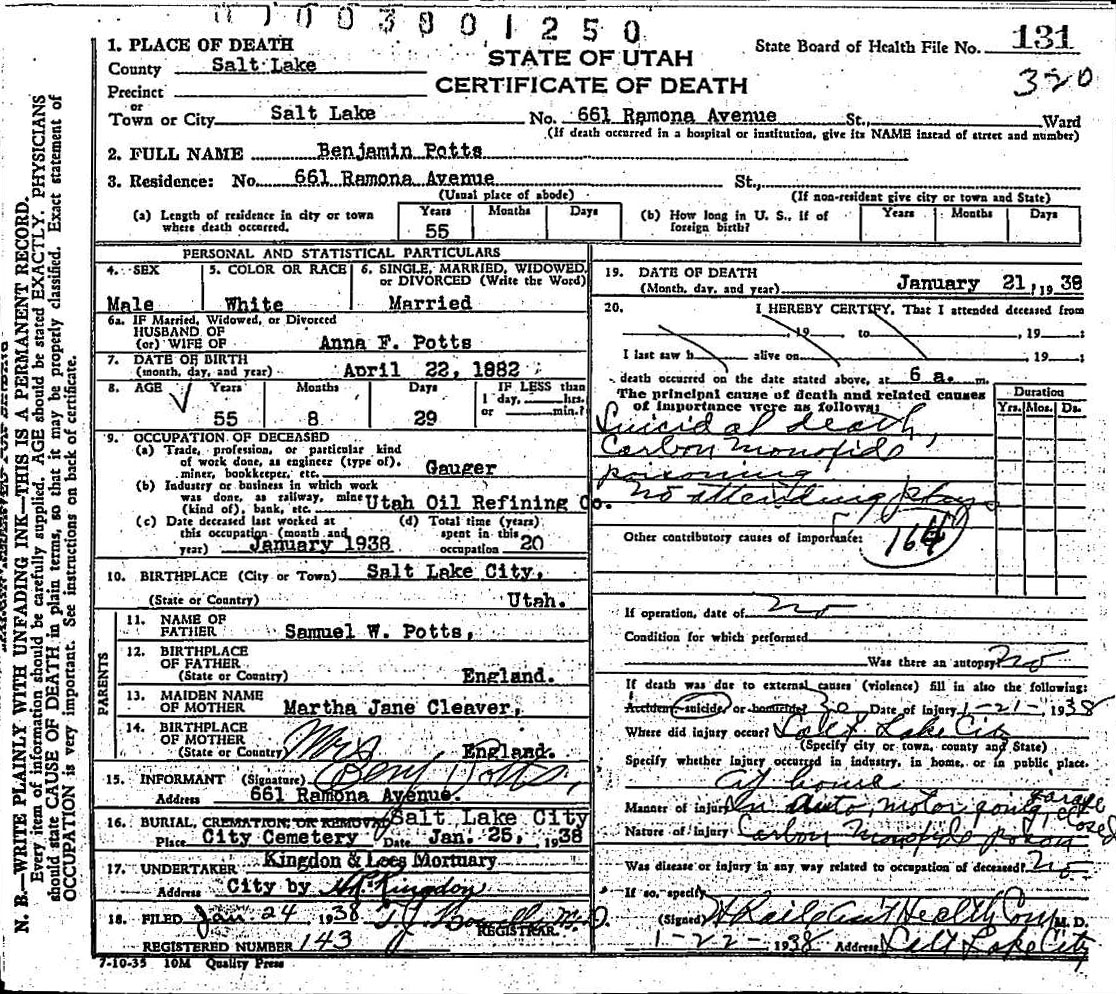 0 1 0 0 3 8 0 1 2 5 0
State Board of Health File No. 131
320
1. PLACE OF DEATH
STATE OF UTAH
County Salt Lake
CERTIFICATE OF DEATH
Precinct
or
Town or City Salt Lake No. 661 Ramona Avenue St., Ward
(If death occurred in a hospital or institution, give its NAME instead of street and number)
2. FULL NAME Benjamin Potts
3. Residence: No. 661 Ramona Avenue St.,
(Usual place of abode) (If non-resident give city or town and State)
(a) Length of residence in city or town where death occurred. Years 55 Months Days
(b) How long in U. S., if of foreign birth? Years Months Days
PERSONAL AND STATISTICAL PARTICULARS
4. SEX Male
5. COLOR OR RACE White
6. SINGLE, MARRIED, WIDOWED, or DIVORCED (Write the Word) Married
6a. IF Married, Widowed, or Divorced
HUSBAND OF
(or) WIFE OF Anna F. Potts
7. DATE OF BIRTH
(month, day, and year) April 22, 1882
8. AGE Years 55 Months 8 Days 29 IF LESS than 1 day, hrs. or min.?
9. OCCUPATION OF DECEASED
(a) Trade, profession, or particular kind
of work done, as engineer (type of),
miner, bookkeeper, etc. Gauger
(b) Industry or business in which work
was done, as railway, mine
(kind of), bank, etc. Utah Oil Refining Co.
(c) Date deceased last worked at
this occupation (month and
year) January 1938
(d) Total time (years)
spent in this
occupation 20
10. BIRTHPLACE (City or Town) Salt Lake City,
(State or Country) Utah.
PARENTS
11. NAME OF
FATHER Samuel W. Potts,
12. BIRTHPLACE
OF FATHER
(State or Country) England.
13. MAIDEN NAME
OF MOTHER Martha Jane Cleaver,
14. BIRTHPLACE
OF MOTHER
(State or Country) England.
15. INFORMANT (Signature) Mrs Benj Potts,
Address 661 Ramona Avenue.
16. BURIAL, CREMATION, OR REMOVAL Salt Lake City
Place City Cemetery Date Jan. 25, 1938
17. UNDERTAKER Kingdon & Lees Mortuary
Address City by Kingdon
18. FILED Jan 24 1938 M.D.
REGISTRAR.
REGISTERED NUMBER 143
7-10-35 10M Quality Press
19. DATE OF DEATH
(Month, day, and year) January 21, 1938
20. I HEREBY CERTIFY, That I attended deceased from
, 19 to , 19 ;
I last saw h alive on , 19 ;
death occurred on the date stated above, at 6 a. m.
The principal cause of death and related causes
of importance were as follows:
Duration
Yrs. Mos. Ds.
Suicidal death,
Carbon monoxide
poisoning
No attending phys
Other contributory causes of importance: 164
If operation, date of no
Condition for which performed
Was there an autopsy? no
If death was due to external causes (violence) fill in also the following:
Accident, suicide, or homicide? Date of injury 1-21-1938
Where did injury occur? Salt Lake City
(Specify city or town, county and State)
Specify whether injury occurred in industry, in home, or in public place.
at home
Manner of injury In auto, motor going, garage closed
Nature of injury Carbon Monoxide poison
Was disease or injury in any way related to occupation of deceased? no
If so, specify
(Signed) Health Com M. D.
1-22-1938 Address Salt Lake City
N. B.—WRITE PLAINLY WITH UNFADING INK—THIS IS A PERMANENT RECORD.
Every item of information should be carefully supplied. AGE should be stated EXACTLY. PHYSICIANS
should state CAUSE OF DEATH in plain terms, so that it may be properly classified. Exact statement of
OCCUPATION is very important. See instructions on back of certificate.